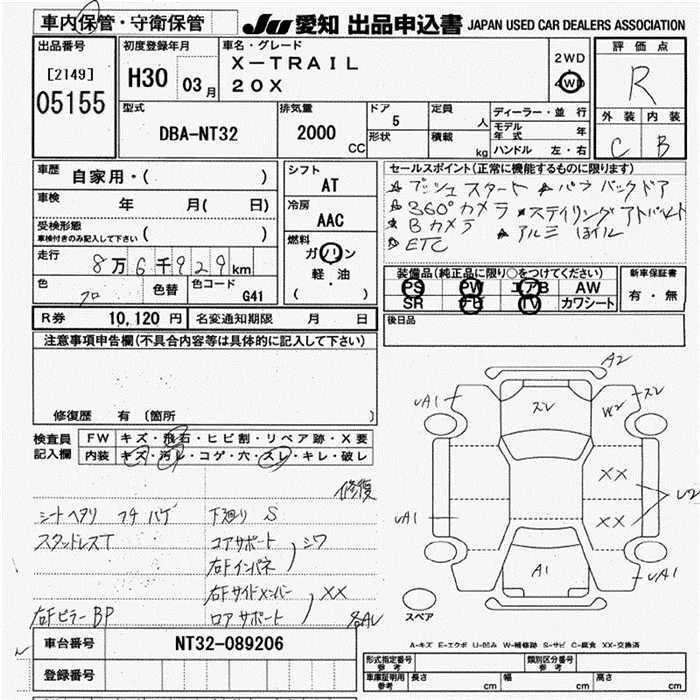 車内保管・守衛保管 JU 愛知 出品申込書 JAPAN USED CAR DEALERS ASSOCIATION
出品番号
[2149]
05155
初度登録年月
H30 03 月
車名・グレード
X-TRAIL
20X
2WD
4WD
評価点
R
外装 内装
C B
型式
DBA-NT32
排気量
2000
CC
ドア
5
形状
定員
人
積載
kg
ディーラー・並行
モデル年式 年
ハンドル 左・右
車歴
自家用・( )
車検
年 月( 日)
受検形態
車検付きのみ記入して下さい ( )
走行
8万6千929km
色
クロ
色替
色コード
G41
シフト
AT
冷房
AAC
燃料
ガソリン
軽・油
( )
セールスポイント(正常に機能するものに限ります)
プッシュスタート パワーバックドア
360°カメラ
Bカメラ アルミホイル
ETC
装備品(純正品に限り○をつけてください)
PS PW エアB AW
SR ナビ TV カワシート
新車保証書
有・無
後日品
R券 10,120 円 名変通知期限 月 日
注意事項申告欄(不具合内容等は具体的に記入して下さい)
修復歴 有 〔箇所 〕
検査員
記入欄
FW キズ・飛石・ヒビ割・リペア跡・X要
内装 キズ・汚レ・コゲ・穴・スレ・キレ・破レ
修復
シートヘタリ フチハゲ 下廻り S
スタッドレスT コアサポート シワ
右Fインパネ
右Fサイドメンバー XX
右FピラーBP ロアサポート
A2
UA1
スレ
スレ
W2
XX
U2
XX
UA1
A1
UA1
スペア
A-キズ E-エクボ U-凹み W-補修跡 S-サビ C-腐食 XX-交換済
車台番号 NT32-089206
登録番号
型式指定番号
参考
類別区分番号
参考
車庫証明用
参考
長さ cm 幅 cm 高さ cm